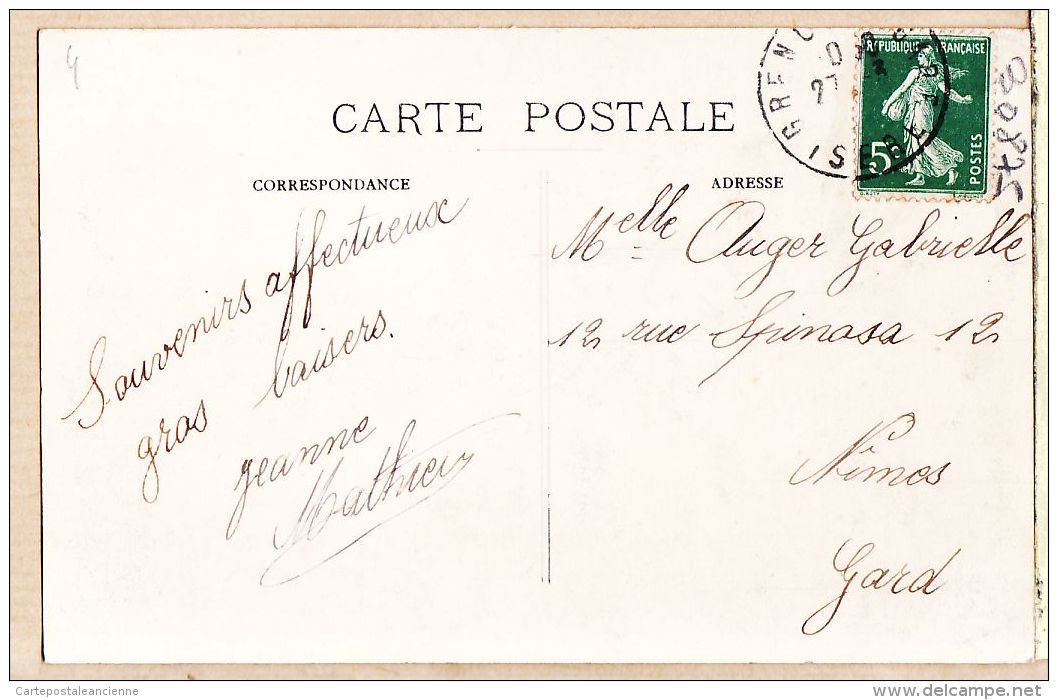 4
CARTE POSTALE
CORRESPONDANCE
ADRESSE
RÉPUBLIQUE FRANÇAISE
5
POSTES
ISERE
Souvenirs affectueux
gros baisers.
Jeanne
Mathieu
Melle Auger Gabrielle
12 rue Spinosa 12
Nîmes
Gard
Cartepostaleancienne
www.delcampe.net